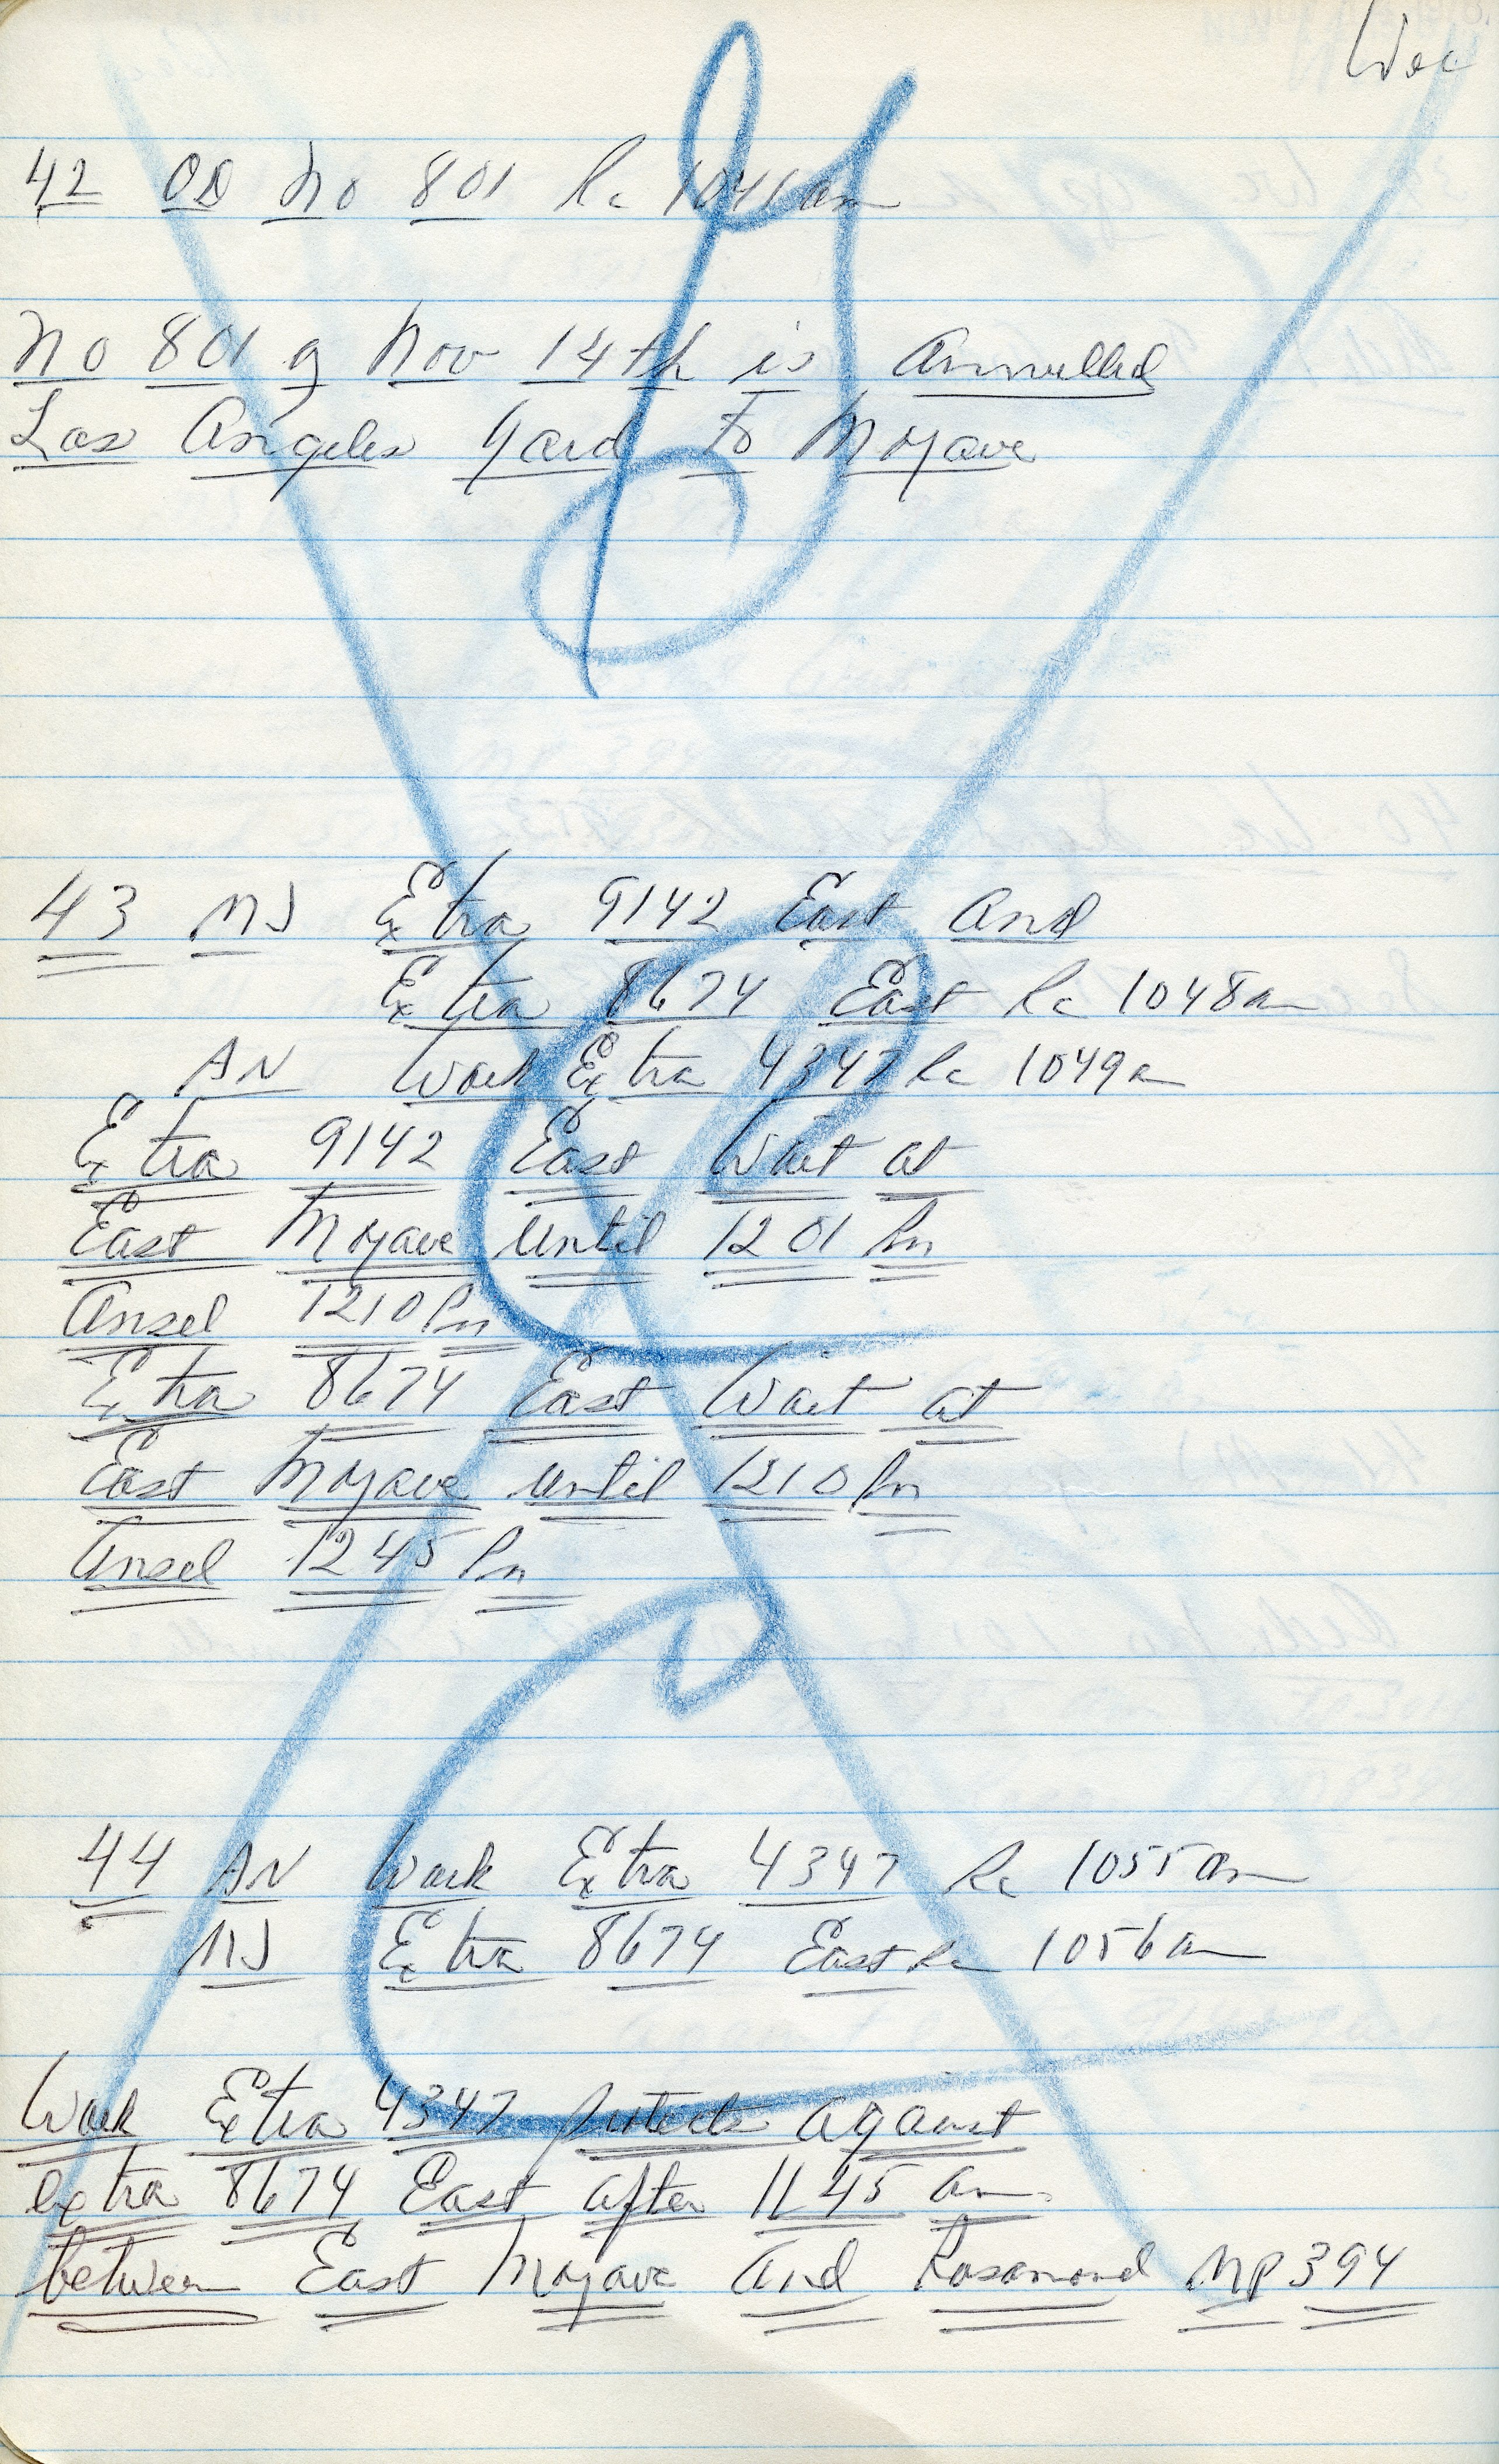 Woc
42 OD No 801 Rc 1041am
No 801 of Nov 14th is Annulled
Los Angeles Yard To Mojave
43 MJ Extra 9142 East And
Extra 8674 East Rc 1048am
AN Work Extra 4347 Rc 1049am
Extra 9142 East Wait at
East Mojave Until 1201 Pm
Ansel 1210 Pm
Extra 8674 East Wait at
East Mojave until 1210 Pm
Ansel 1245 Pm
44 AN Work Extra 4347 Rc 1055am
MJ Extra 8674 East Rc 1056am
Work Extra 4347 protects against
extra 8674 East after 1145 am
between East Mojave And Rosamond MP 394